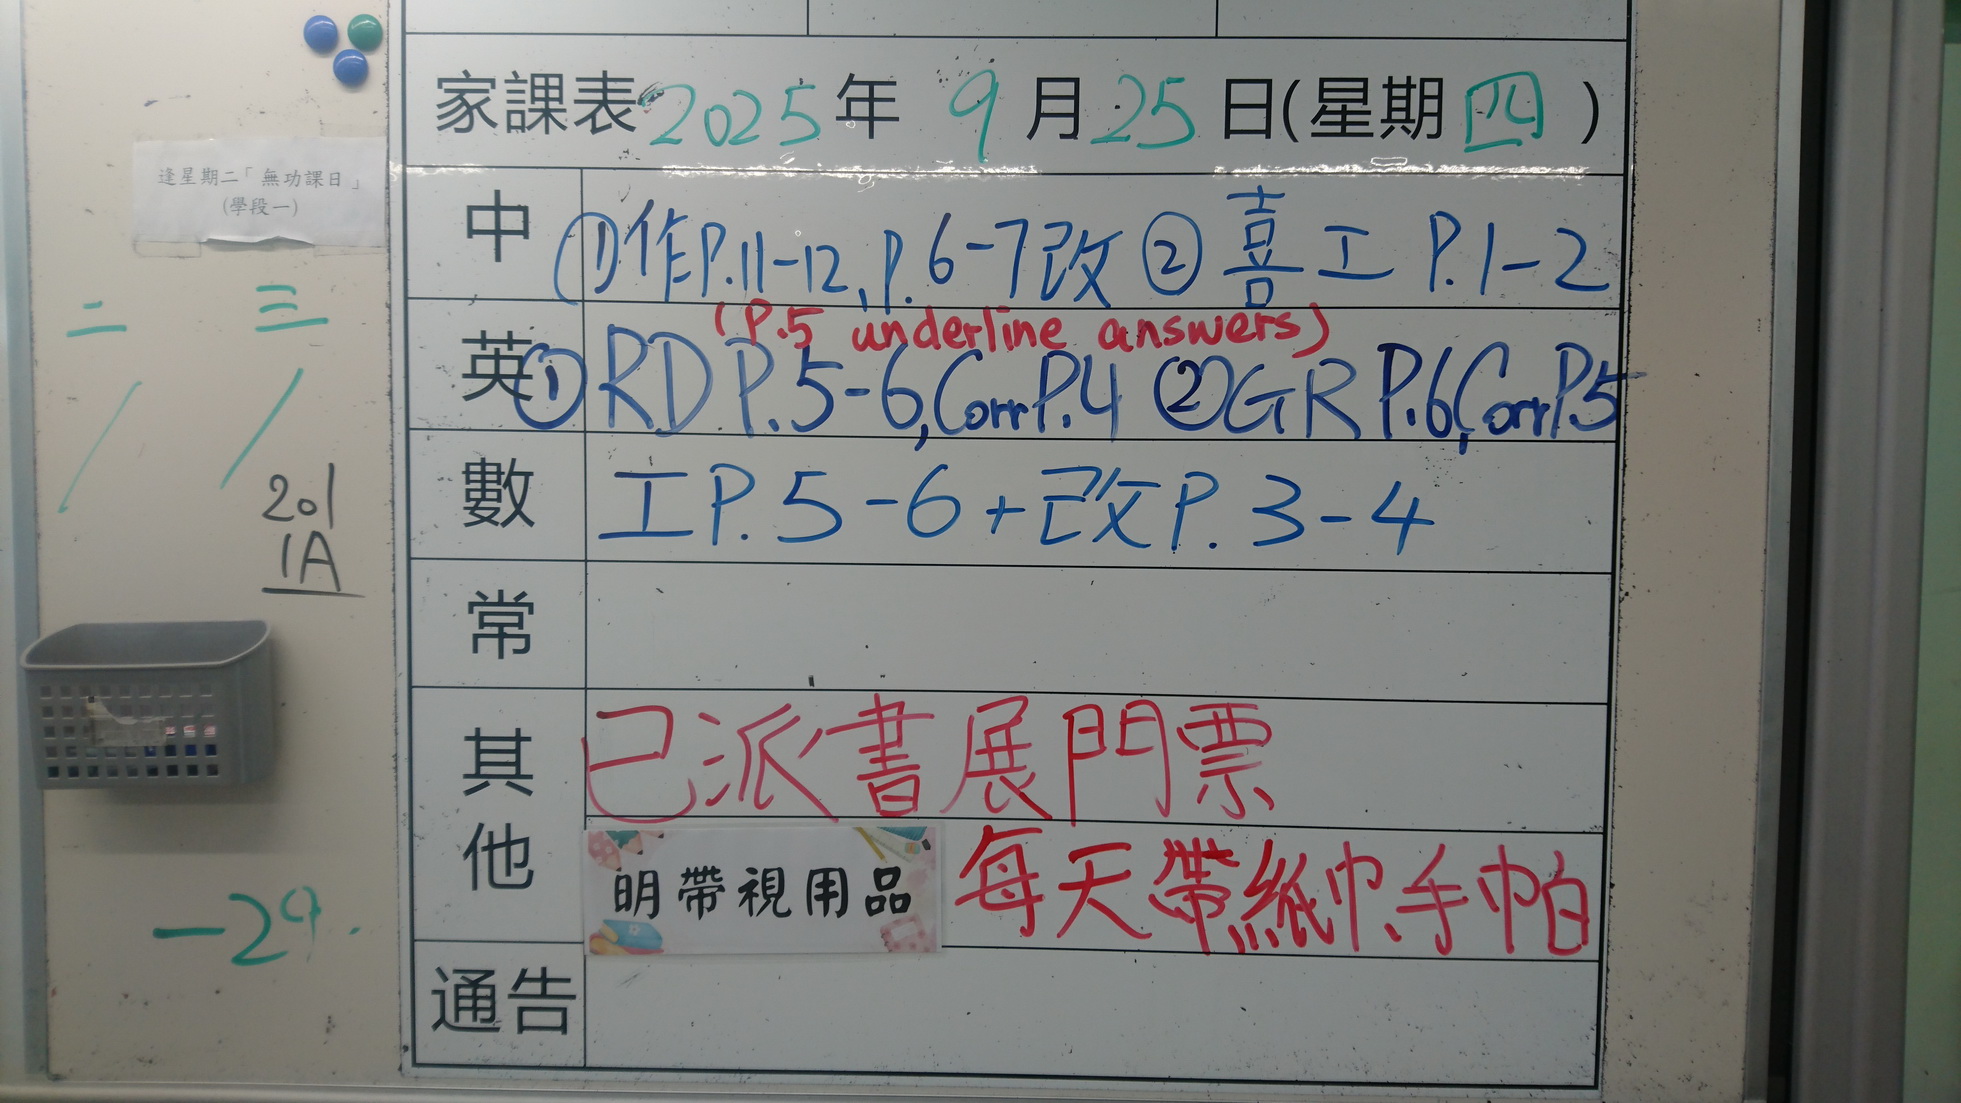 家課表 2025年 9月25日(星期四)
逢星期二「無功課日」
(學段一)
中 ①作P.11-12, P.6-7改 ②喜工P.1-2
(P.5 underline answers)
英 ①RD P.5-6, Corr P.4 ②GR P.6, Corr P.5
數 工P.5-6+改P.3-4
常
其他
已派書展門票
明帶視用品 每天帶紙巾、手帕
通告
二 三
201
1A